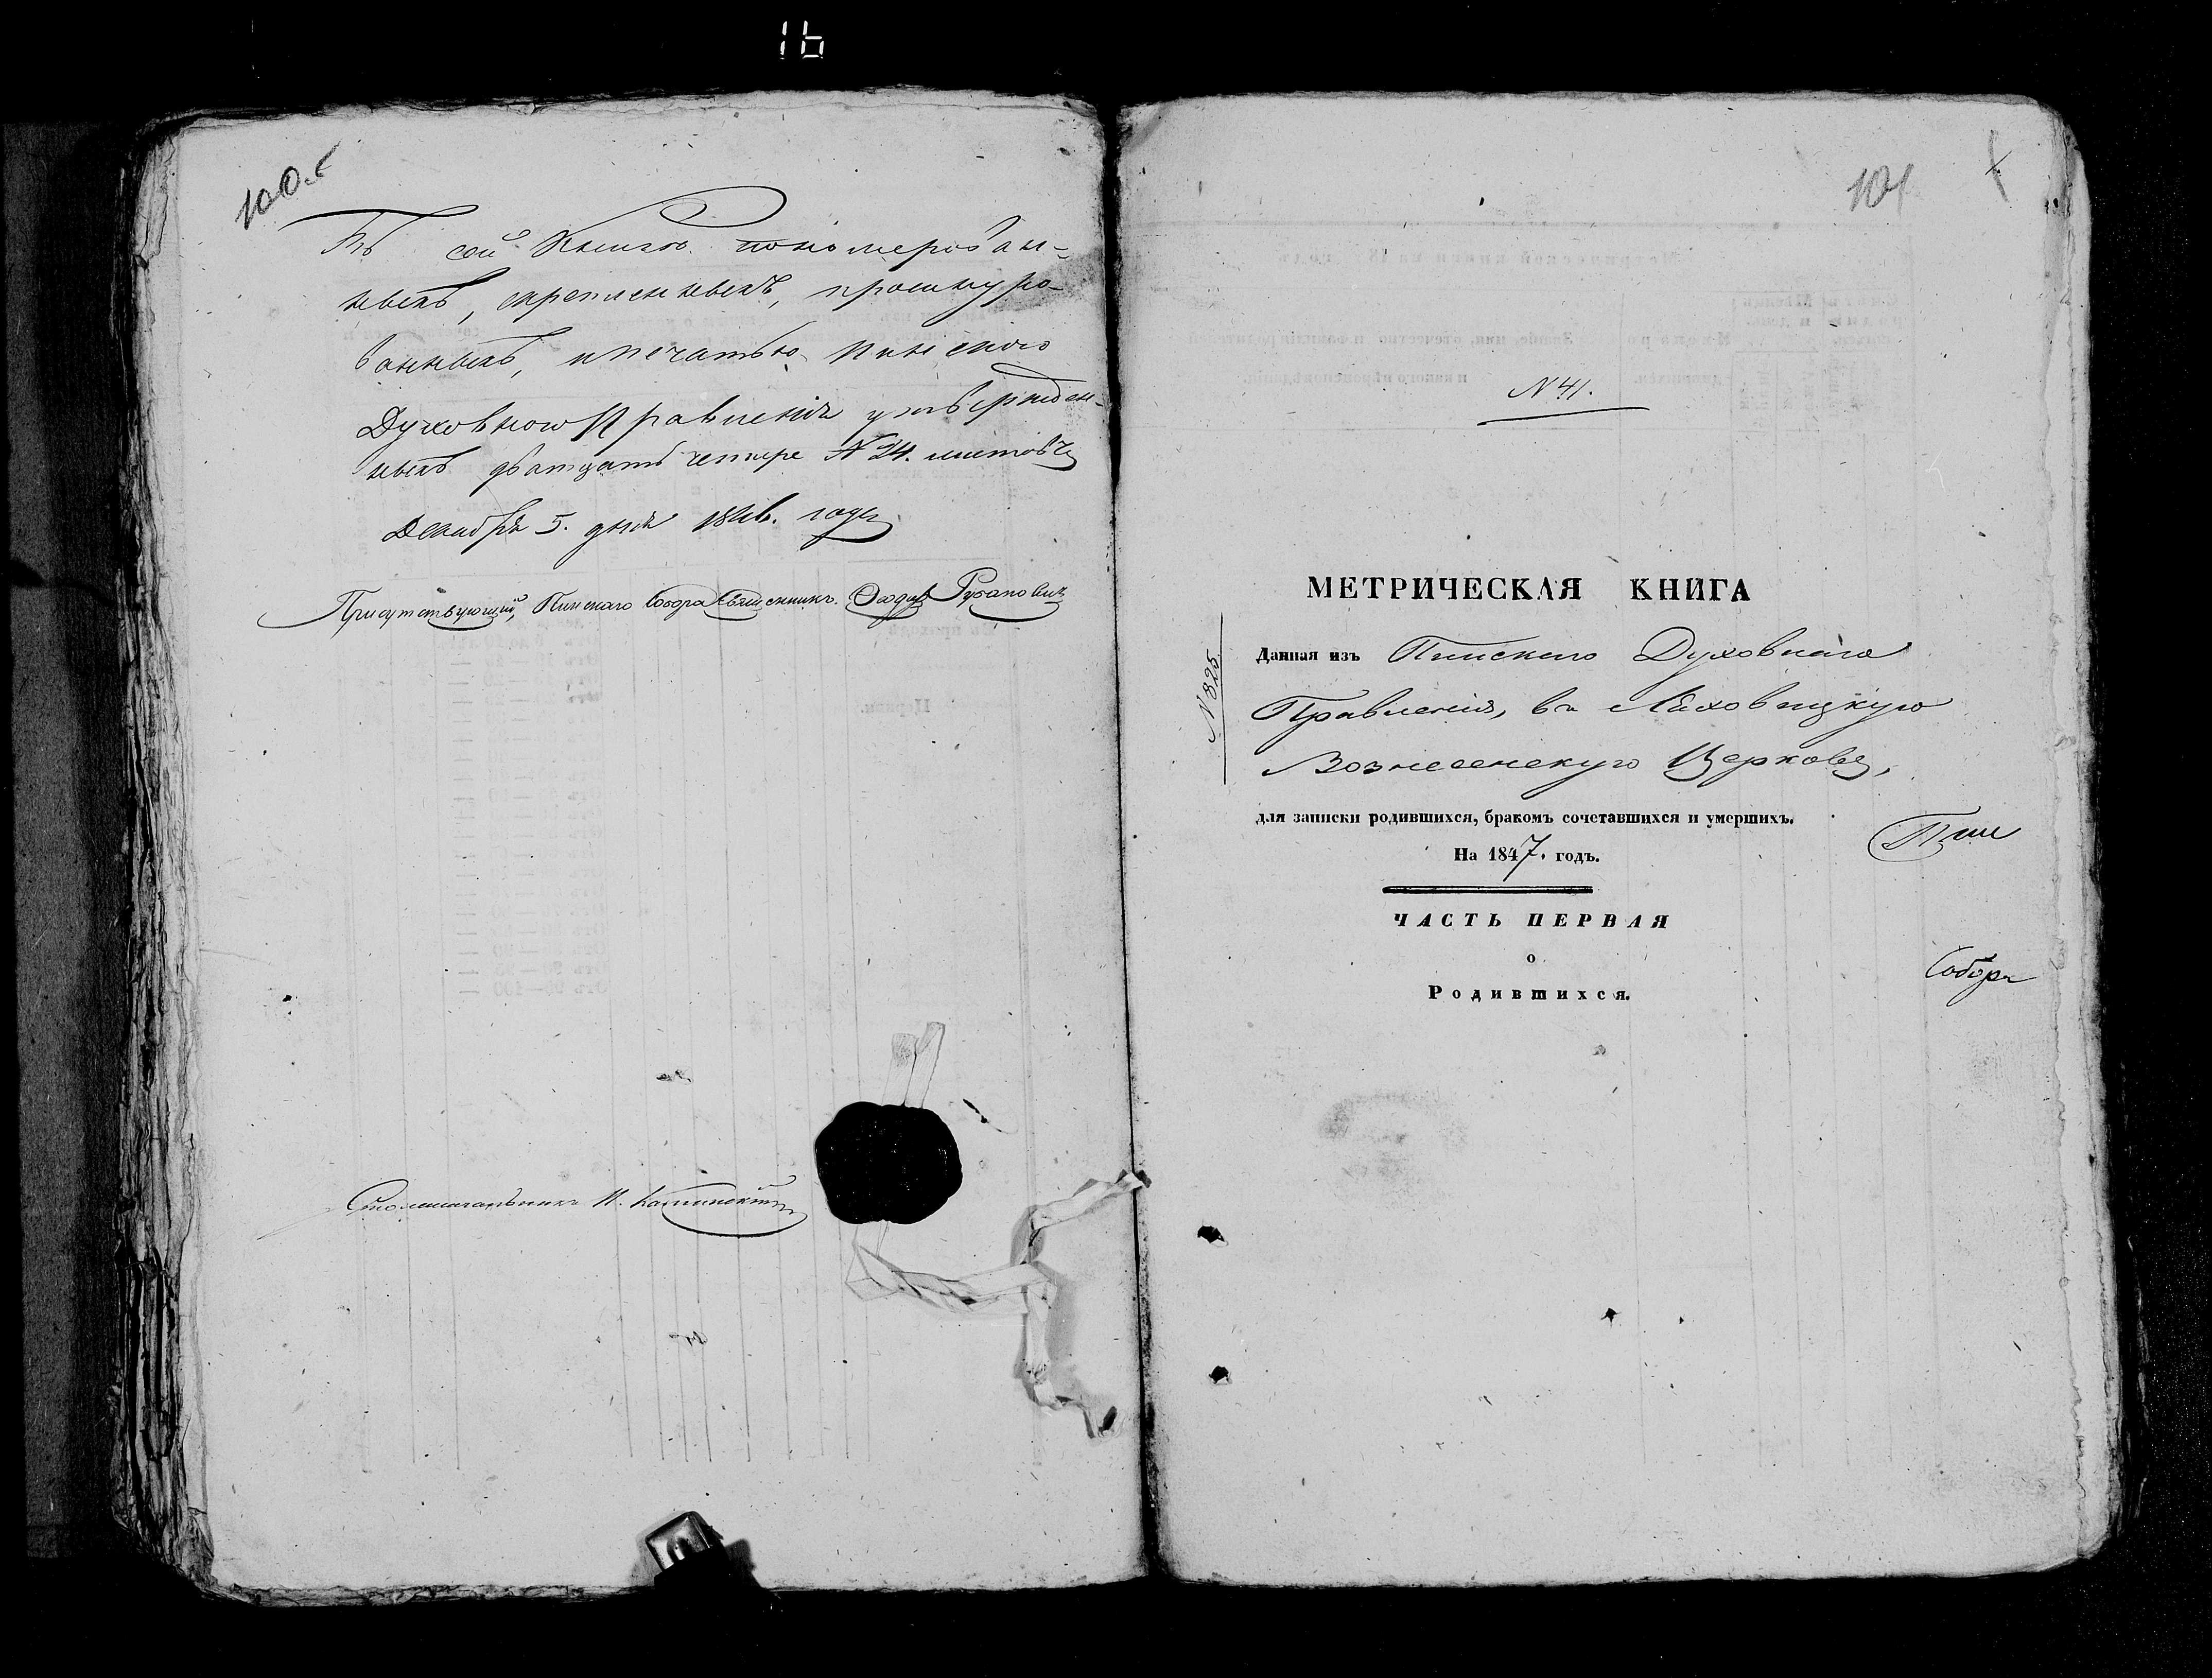 16
100.
Въ сей Книгѣ пономерован-
ныхъ, скрепленныхъ, прошнуро-
ванныхъ, и печатью Пинскаго
Духовного Правленія утвержден-
ныхъ двадцать четире № 24. листовъ
Декабря 5. дня 1846. года
Присутствующій, Пинскаго Собора Священникъ
Столоначальникъ
101
N 41.
МЕТРИЧЕСКАЯ КНИГА
N 825.
Данная изъ Пинскаго Духовнаго
Правленія, въ Ляховицкую
Вознесенскую Церковь,
для записки родившихся, бракомъ сочетавшихся и умершихъ.
На 1847. годъ.
Пин
ЧАСТЬ ПЕРВАЯ
о
Родившихся.
Собора